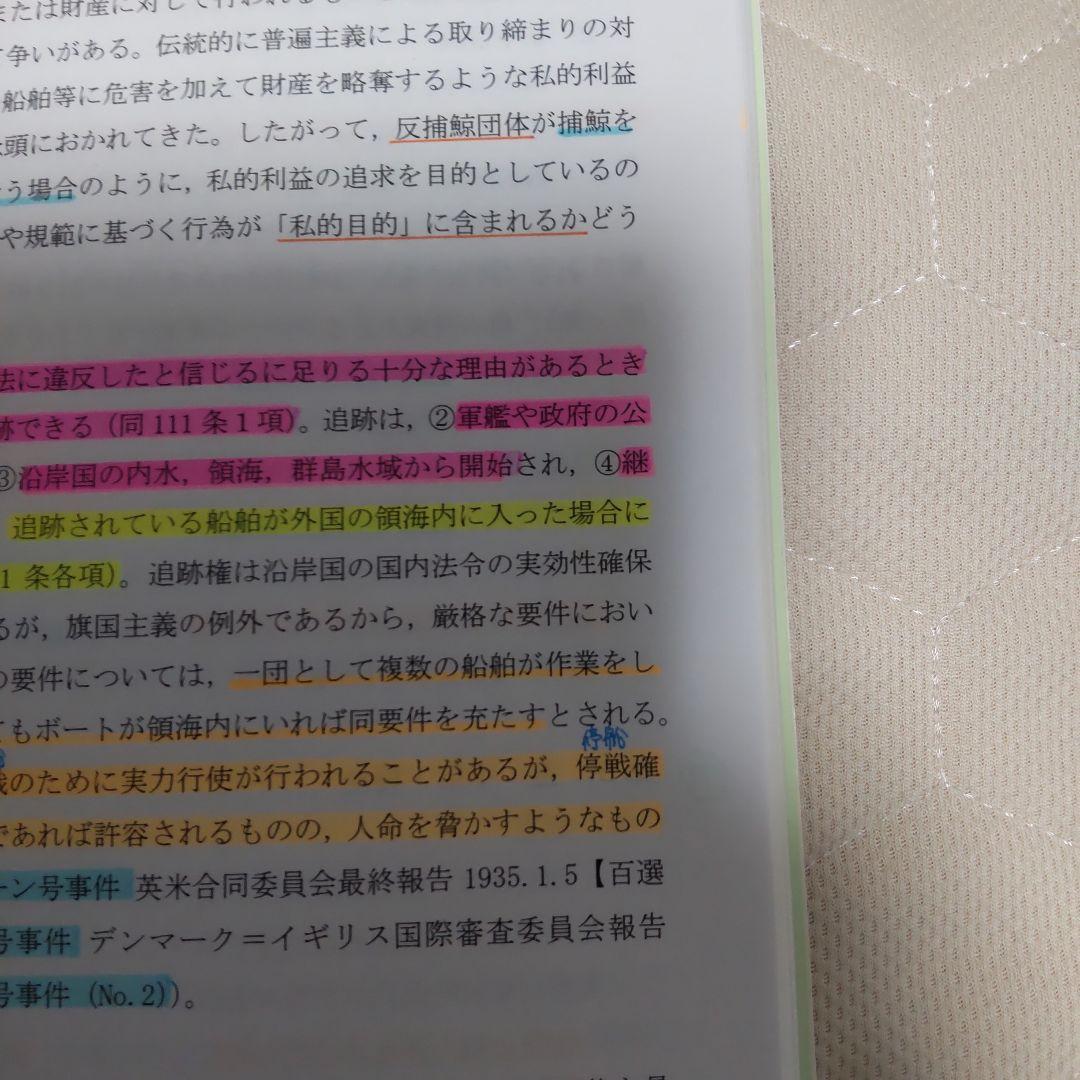 または財産に対して行われる
争いがある。伝統的に普遍主義による取り締まりの対
船舶等に危害を加えて財産を略奪するような私的利益
頭におかれてきた。したがって，反捕鯨団体が捕鯨を
う場合のように，私的利益の追求を目的としているの
や規範に基づく行為が「私的目的」に含まれるかどう
法に違反したと信じるに足りる十分な理由があるとき
跡できる（同111条1項）。追跡は，②軍艦や政府の公
③沿岸国の内水，領海，群島水域から開始され，④継
追跡されている船舶が外国の領海内に入った場合に
1条各項）。追跡権は沿岸国の国内法令の実効性確保
るが，旗国主義の例外であるから，厳格な要件におい
の要件については，一団として複数の船舶が作業をし
てもボートが領海内にいれば同要件を充たすとされる。
停船
戦のために実力行使が行われることがあるが，停戦確
であれば許容されるものの，人命を脅かすようなもの
ーン号事件 英米合同委員会最終報告 1935.1.5【百選
号事件 デンマーク＝イギリス国際審査委員会報告
号事件（No.2)）。